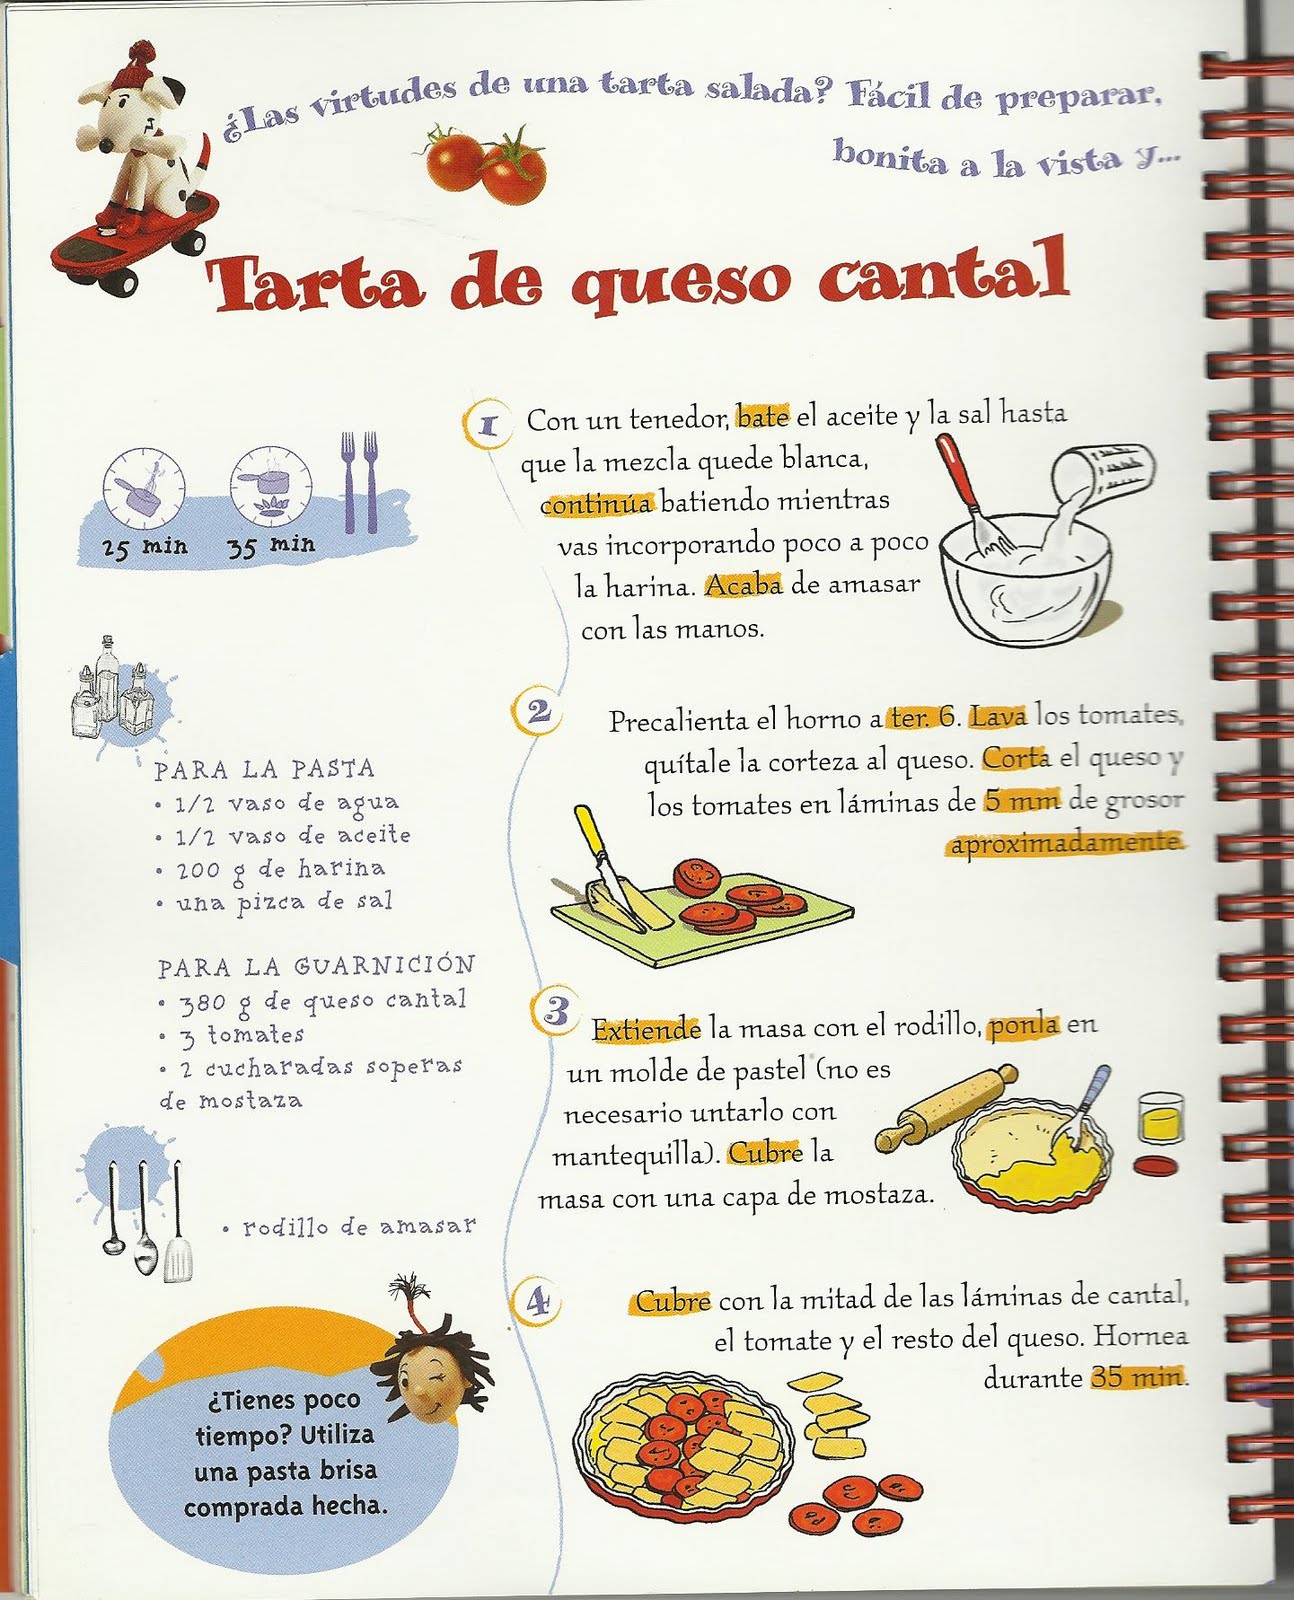 ¿Las virtudes de una tarta salada? Fácil de preparar,
bonita a la vista y...
Tarta de queso cantal
25 min
35 min
PARA LA PASTA
• 1/2 vaso de agua
• 1/2 vaso de aceite
• 200 g de harina
• una pizca de sal
PARA LA GUARNICIÓN
• 380 g de queso cantal
• 3 tomates
• 2 cucharadas soperas
de mostaza
• rodillo de amasar
¿Tienes poco
tiempo? Utiliza
una pasta brisa
comprada hecha.
1 Con un tenedor, bate el aceite y la sal hasta
que la mezcla quede blanca,
continúa batiendo mientras
vas incorporando poco a poco
la harina. Acaba de amasar
con las manos.
2 Precalienta el horno a ter. 6. Lava los tomates,
quítale la corteza al queso. Corta el queso y
los tomates en láminas de 5 mm de grosor
aproximadamente.
3 Extiende la masa con el rodillo, ponla en
un molde de pastel (no es
necesario untarlo con
mantequilla). Cubre la
masa con una capa de mostaza.
4 Cubre con la mitad de las láminas de cantal,
el tomate y el resto del queso. Hornea
durante 35 min.